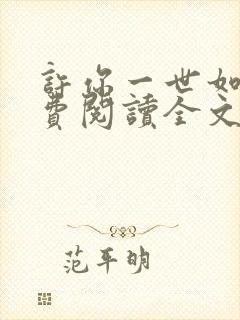 許你一世如
費閱讀全文
范平明